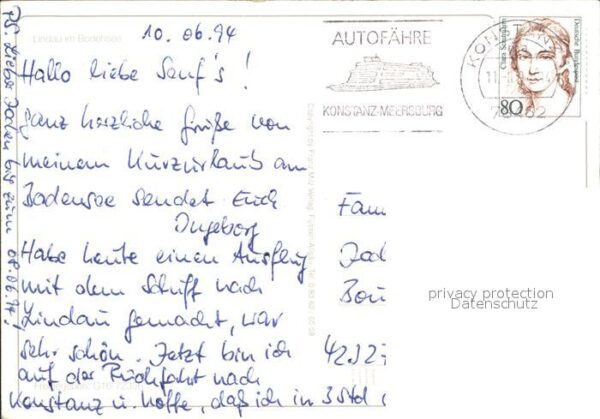 Lindau im Bodensee
10.06.94
Hallo liebe Senf's!
ganz herzliche Grüße von
meinem Kurzurlaub am
Bodensee sendet Euch
Ingeborg
Habe heute einen Ausflug
mit dem Schiff nach
Lindau gemacht, war
sehr schön. Jetzt bin ich
auf der Rückfahrt nach
Konstanz u. hoffe, daß ich in 3 Std
PS. Lieber Jochen bis zum
AUTOFÄHRE
KONSTANZ-MEERSBURG
KONSTANZ
Deutsche Bundespost
80
Fam
Joc
Bou
4232
privacy protection
Datenschutz